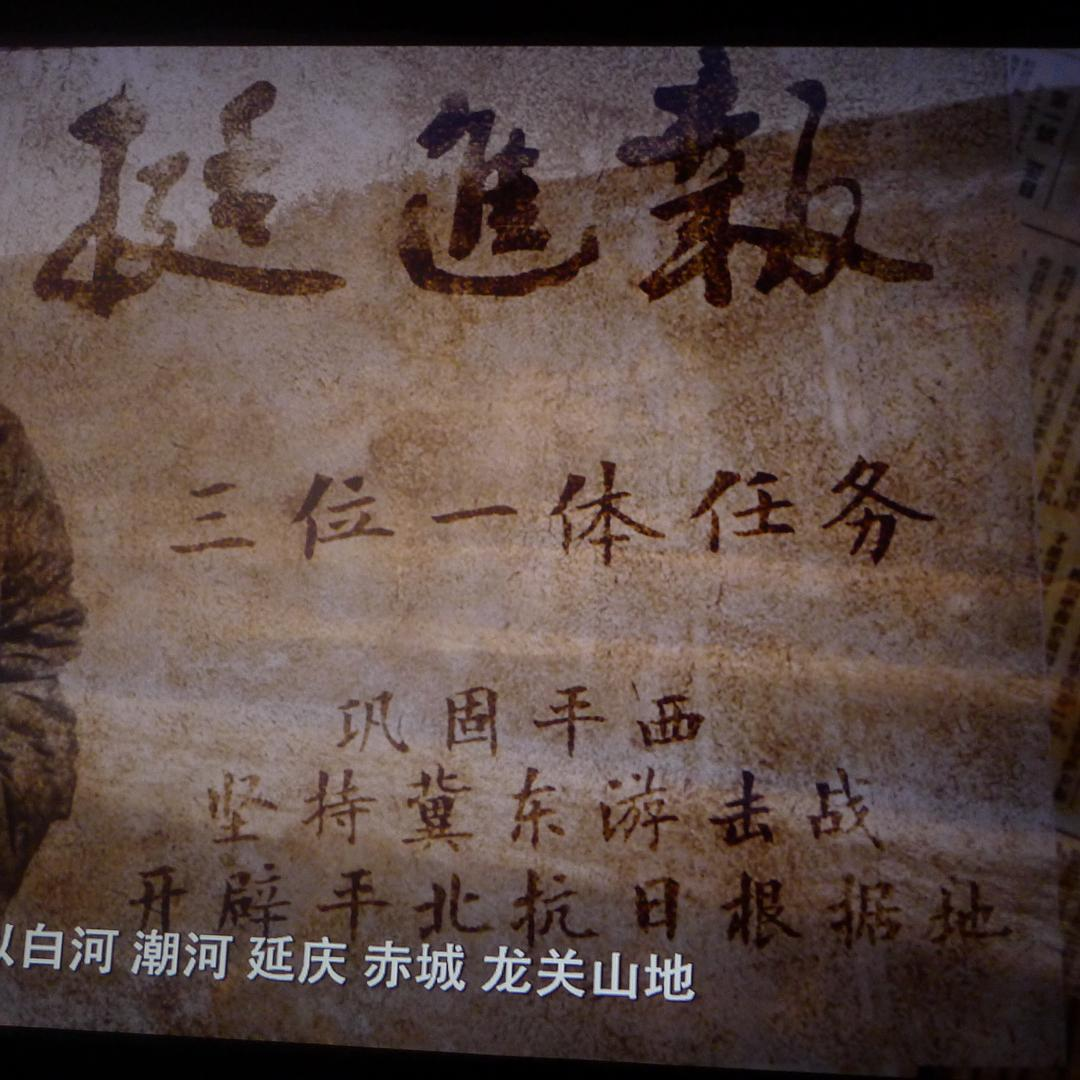 挺進報
三位一体任务
巩固平西
坚持冀东游击战
开辟平北抗日根据地
以白河 潮河 延庆 赤城 龙关山地